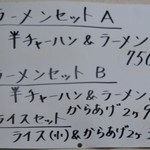 ラーメンセット A
半チャーハン&ラーメン
750
ラーメンセット B
半チャーハン&ラーメン
からあげ2ヶ
ライスセット
ライス(小)&からあげ2ヶ